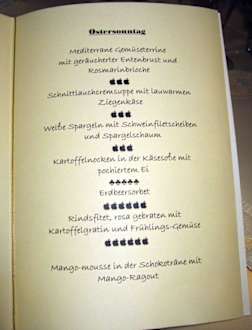 Ostersonntag
Mediterrane Gemüseterrine
mit geräucherter Entenbrust und
Rosmarinbrioche
Schnittlauchcremsuppe mit lauwarmen
Ziegenkäse
Weiße Spargeln mit Schweinfiletscheiben
und Spargelschaum
Kartoffelnocken in der Käsesoße mit
pochiertem Ei
Erdbeersorbet
Rindsfilet, rosa gebraten mit
Kartoffelgratin und Frühlings-Gemüse
Mango-mousse in der Schokoträne mit
Mango-Ragout